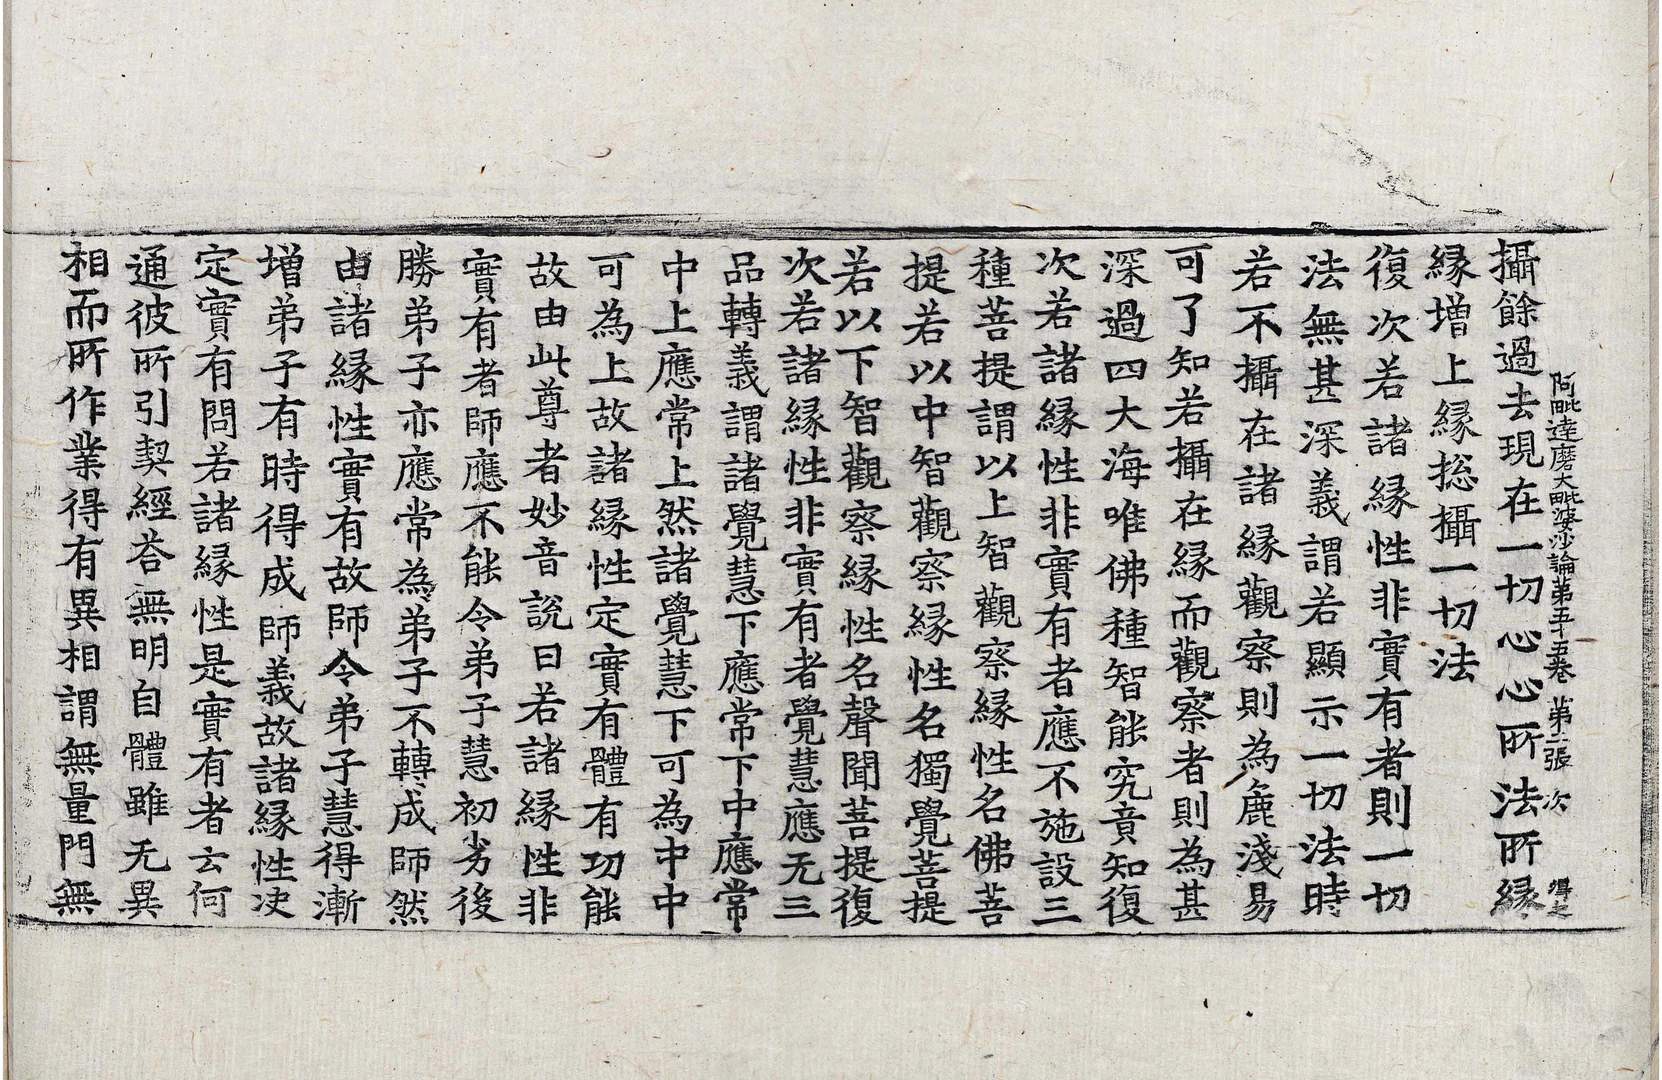 阿毗達磨大毗婆沙論第五十五卷 第二張 次
攝餘過去現在一切心心所法所緣
緣增上緣捴攝一切法
復次若諸緣性非實有者則一切
法無甚深義謂若顯示一切法時
若不攝在諸緣觀察則為麁淺易
可了知若攝在緣而觀察者則為甚
深過四大海唯佛種智能究竟知復
次若諸緣性非實有者應不施設三
種菩提謂以上智觀察緣性名佛菩
提若以中智觀察緣性名獨覺菩提
若以下智觀察緣性名聲聞菩提復
次若諸緣性非實有者覺慧應无三
品轉義謂諸覺慧下應常下中應常
中上應常上然諸覺慧下可為中中
可為上故諸緣性定實有體有功能
故由此尊者妙音說曰若諸緣性非
實有者師應不能令弟子慧初劣後
勝弟子亦應常為弟子不轉成師然
由諸緣性實有故師令弟子慧得漸
增弟子有時得成師義故諸緣性决
定實有問若諸緣性是實有者云何
通彼所引契經荅無明自體雖无異
相而所作業得有異相謂無量門無